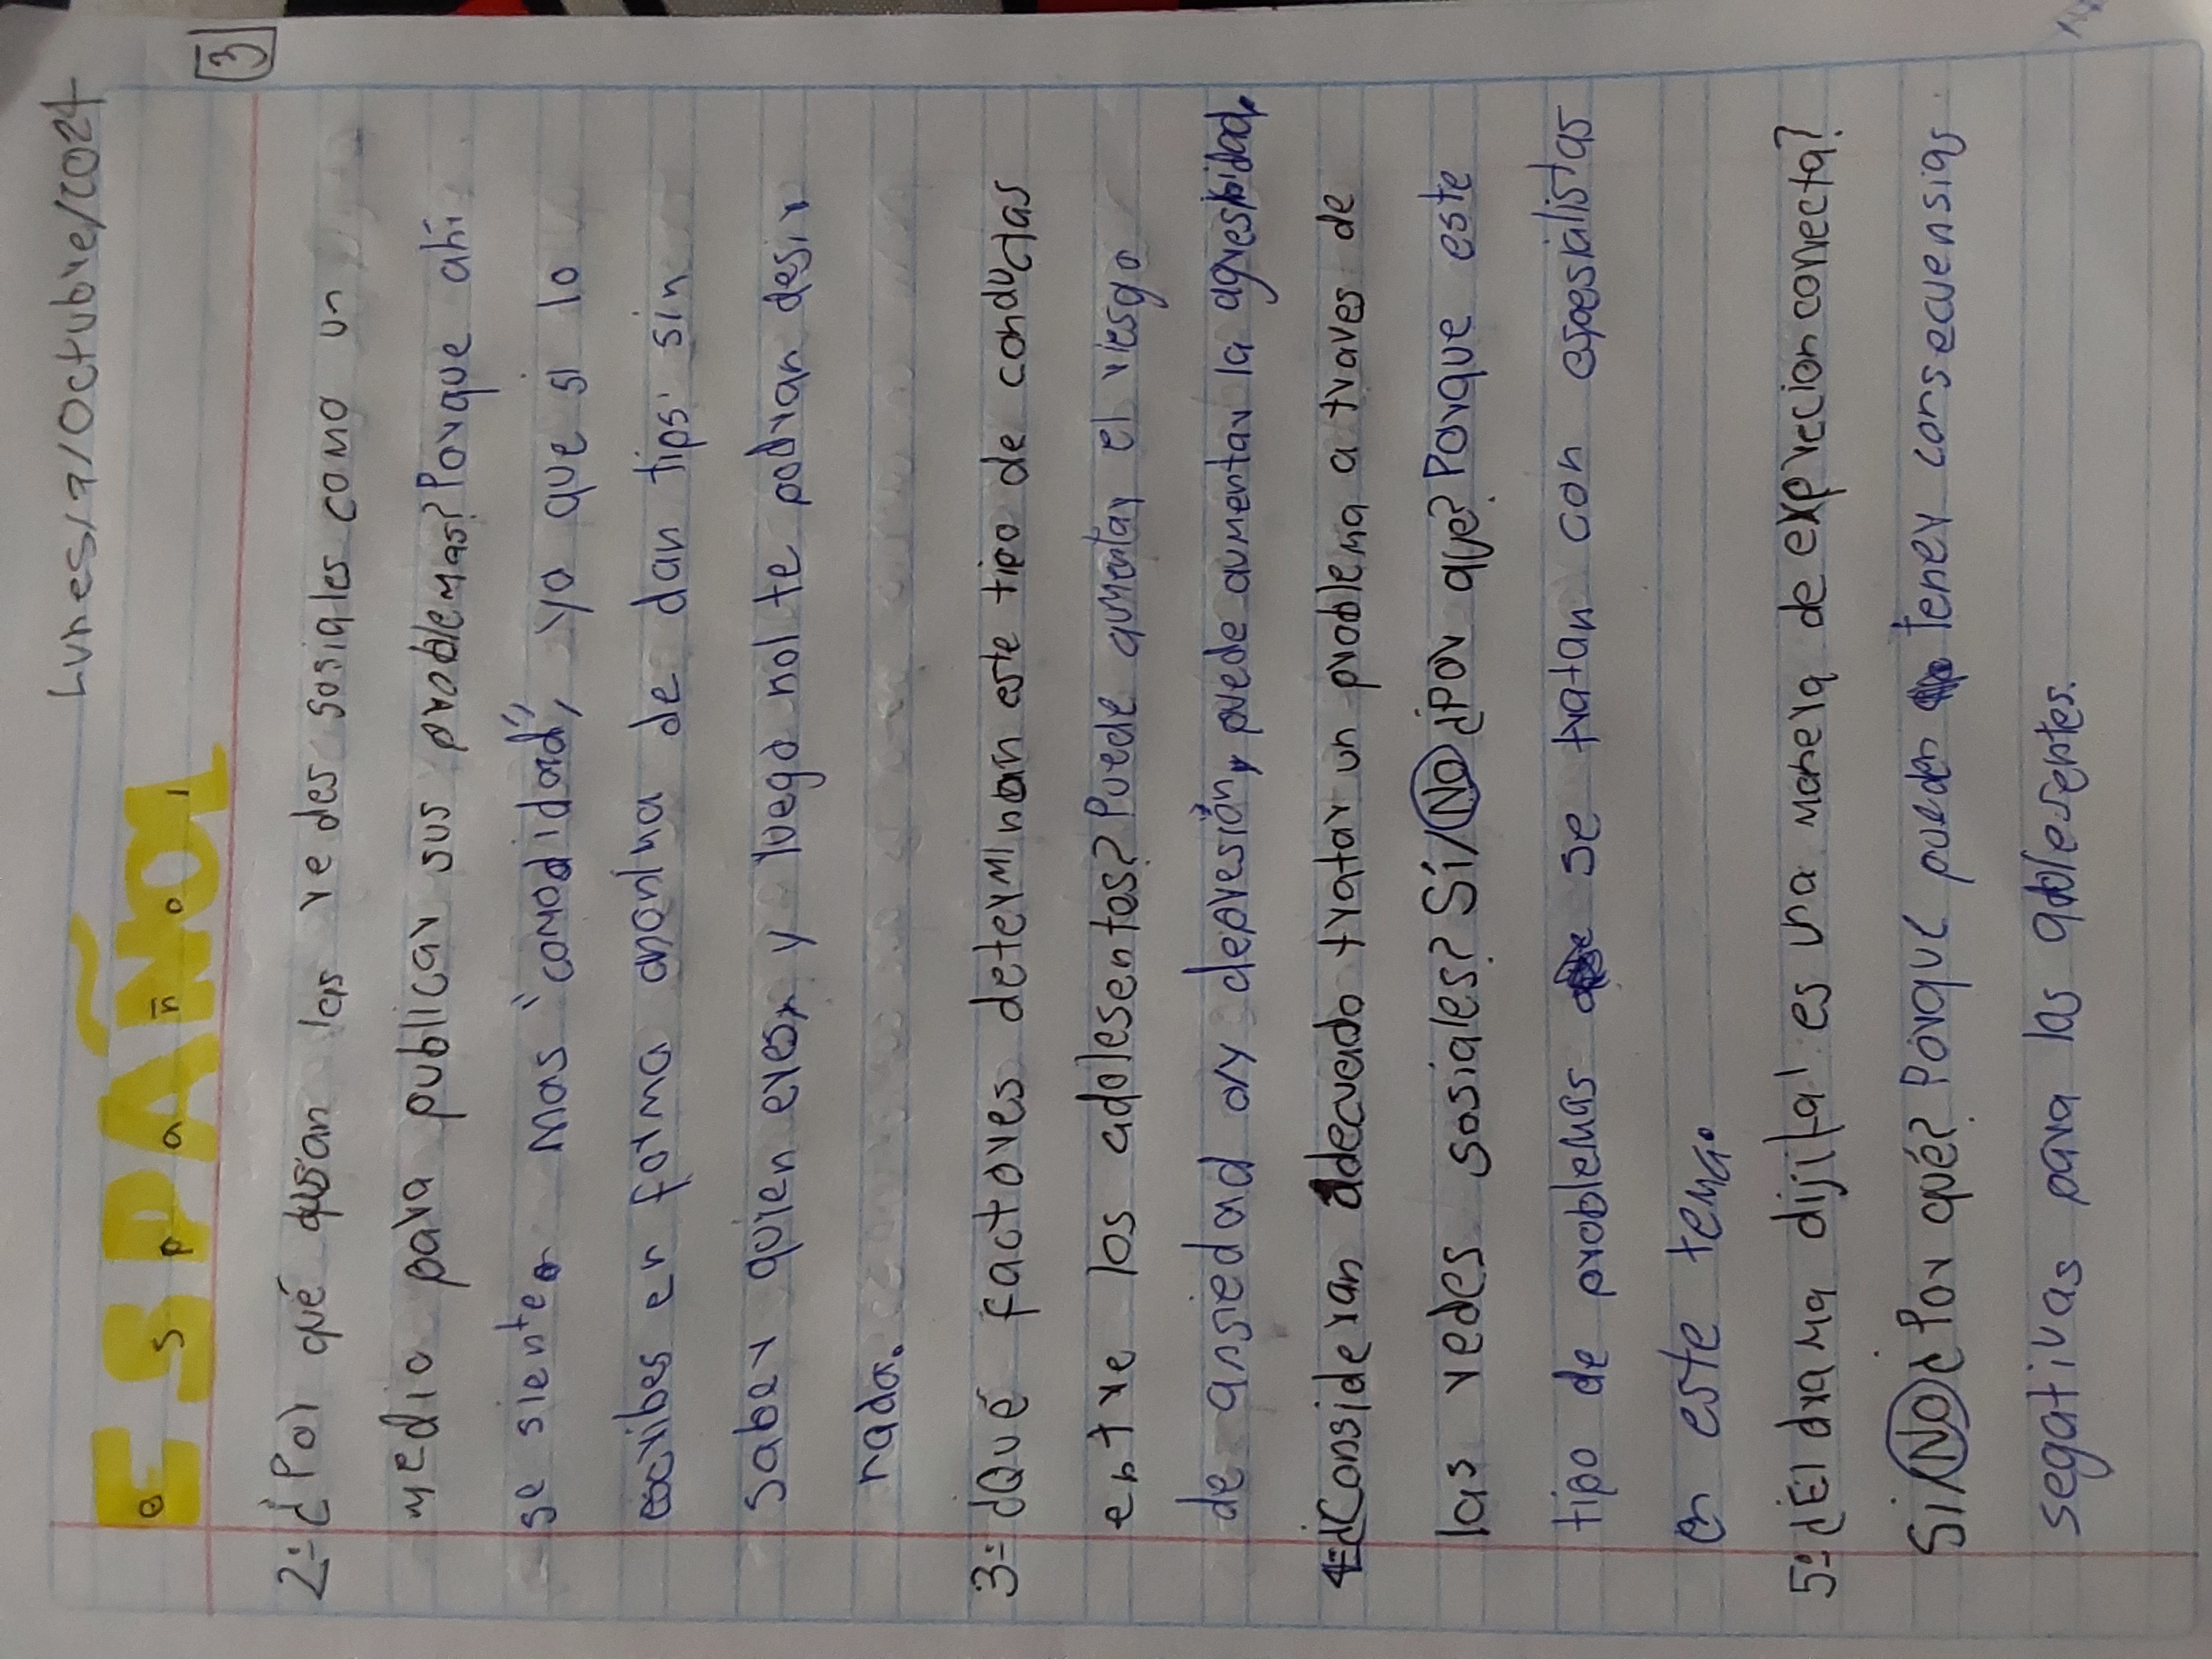 Lunes/7/Octubre/2024
ESPAÑOl
e s p a ñ o l
3
2=¿Por qué usan las redes sosiales como un
medio para publicar sus problemas? Porque ahí
se sienten mas "comodidad", ya que si lo
escribes en forma anonima de dan tips sin
saber quien eres y luego nol te podran desir
nada.
3=¿Qué factores determinan este tipo de conductas
entre los adolesentas? Puede aumentar el riesgo
de ansiedad o/y depresión, puede aumentar la agresibidad.
4=¿Consideran adecuado tratar un problema a traves de
las redes sosiales? Sí/No ¿Por que? Porque este
tipo de problemas se tratan con espesialistas
en este tema.
5=¿El drama dijital es una manera de exprecion correcta?
Si/No ¿Por qué? Porque pueden tener consecuensias
segativas para las adolesentes.